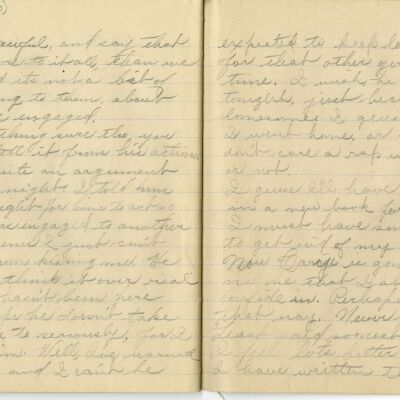 awful, and say that
to it all, than we
d it's not a bit of
ng to them, about
engaged.
thing sure tho, you
tell it from his actions.
uite an argument
night. I told him
ight for him to act so
engaged to another
I just can't
from kissing me. He
think it over real
hasn't been here
be he doesn't take
me seriously, for I
him. Well, I've warned
and I can't be
expected to keep
for that other
time. I wish he
tonight, just
lonesome I guess
I went home, or
don't care a rap
or not.
I guess I'll have
in a new book for
I must have
to get rid of my
Now Carrye is gone
no one that I
confide in. Perhaps
that way. Never
least said soonest
I feel lots better
I have written